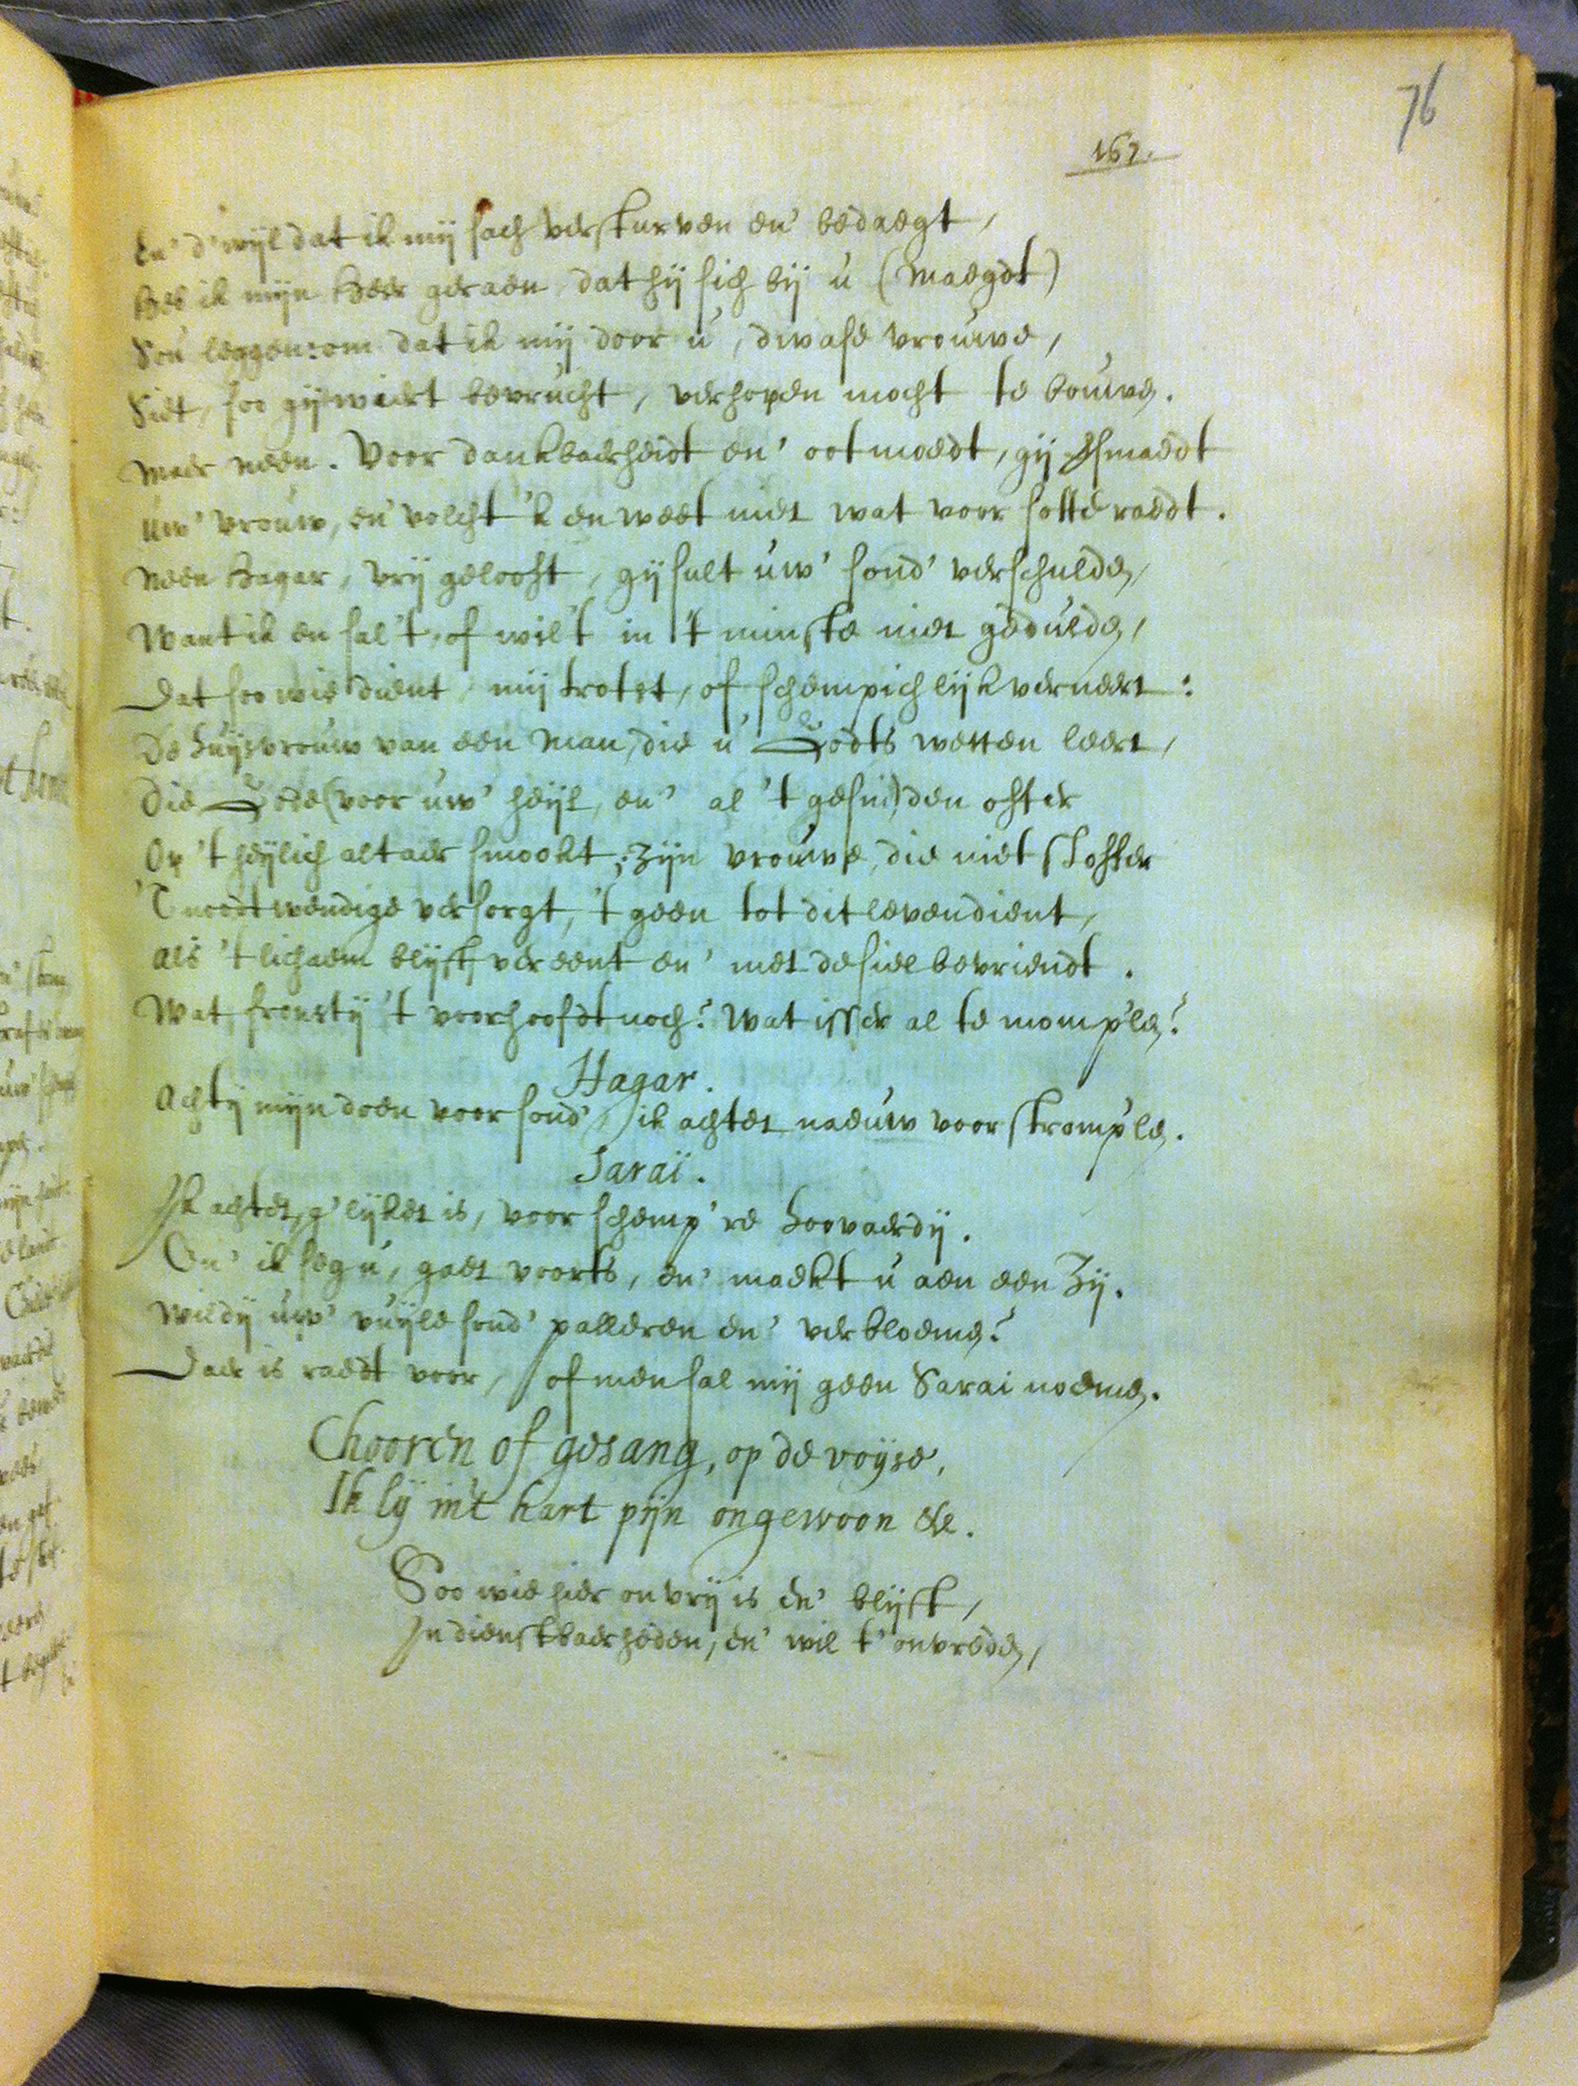 76
167.
En' d'wijl dat ik mij sach versturven en' bedaegt,
Heb ik mijn Heer geraen, dat hij sich bij u (Maegdt)
Sou leggen: om dat ik mij door u, dwase vrouwe,
Siet, soo gij wiert bevrucht, verhopen mocht te bouwen.
Maer neen. Voor dankbaerheidt en' ootmoedt, gij smaedt
Uw' vrouw, en' volcht 'k en weet niet wat voor sotte raedt.
Neen Hagar, vrij gelooft, gij sult uw' sond' verschulden,
Want ik en sal 't, of wil 't in 't minste niet gedulden,
Dat soo wie dient, mij trotst, of schempichlijk verneert:
De huijsvrouw van een Man, die u Godts wetten leert,
Die Gode (voor uw' heijl, en' al 't gesin) den offer
Op 't heijlich altaer smookt; zijn vrouwe, die niet stoffer
'T nootwendige versorgt, 't geen tot dit leven dient,
Als 't lichaem blijft vereent en' met de siel bevriendt.
Wat fronsty 't voorhoofdt noch? Wat isser al te momp'len?
Hagar.
Achtij mijn doen voor sond', ik achtet naeuw voor stromp'len.
Saraï.
Ik achtet, g'lijket is, voor schemp're hoovaerdij.
En' ik seg u, gaet voorts, en' maekt u aen een zij.
Wildij uw' vuijle sond' palleren en' verbloemen?
Daer is raedt voor, of men sal mij geen Sarai noemen.
Chooren of gesang, op de voijse,
Ik lij in't hart pijn ongewoon &c.
Soo wie hier onvrij is en' blijft,
In dienstbaerheden, en' wil t'onvreden,